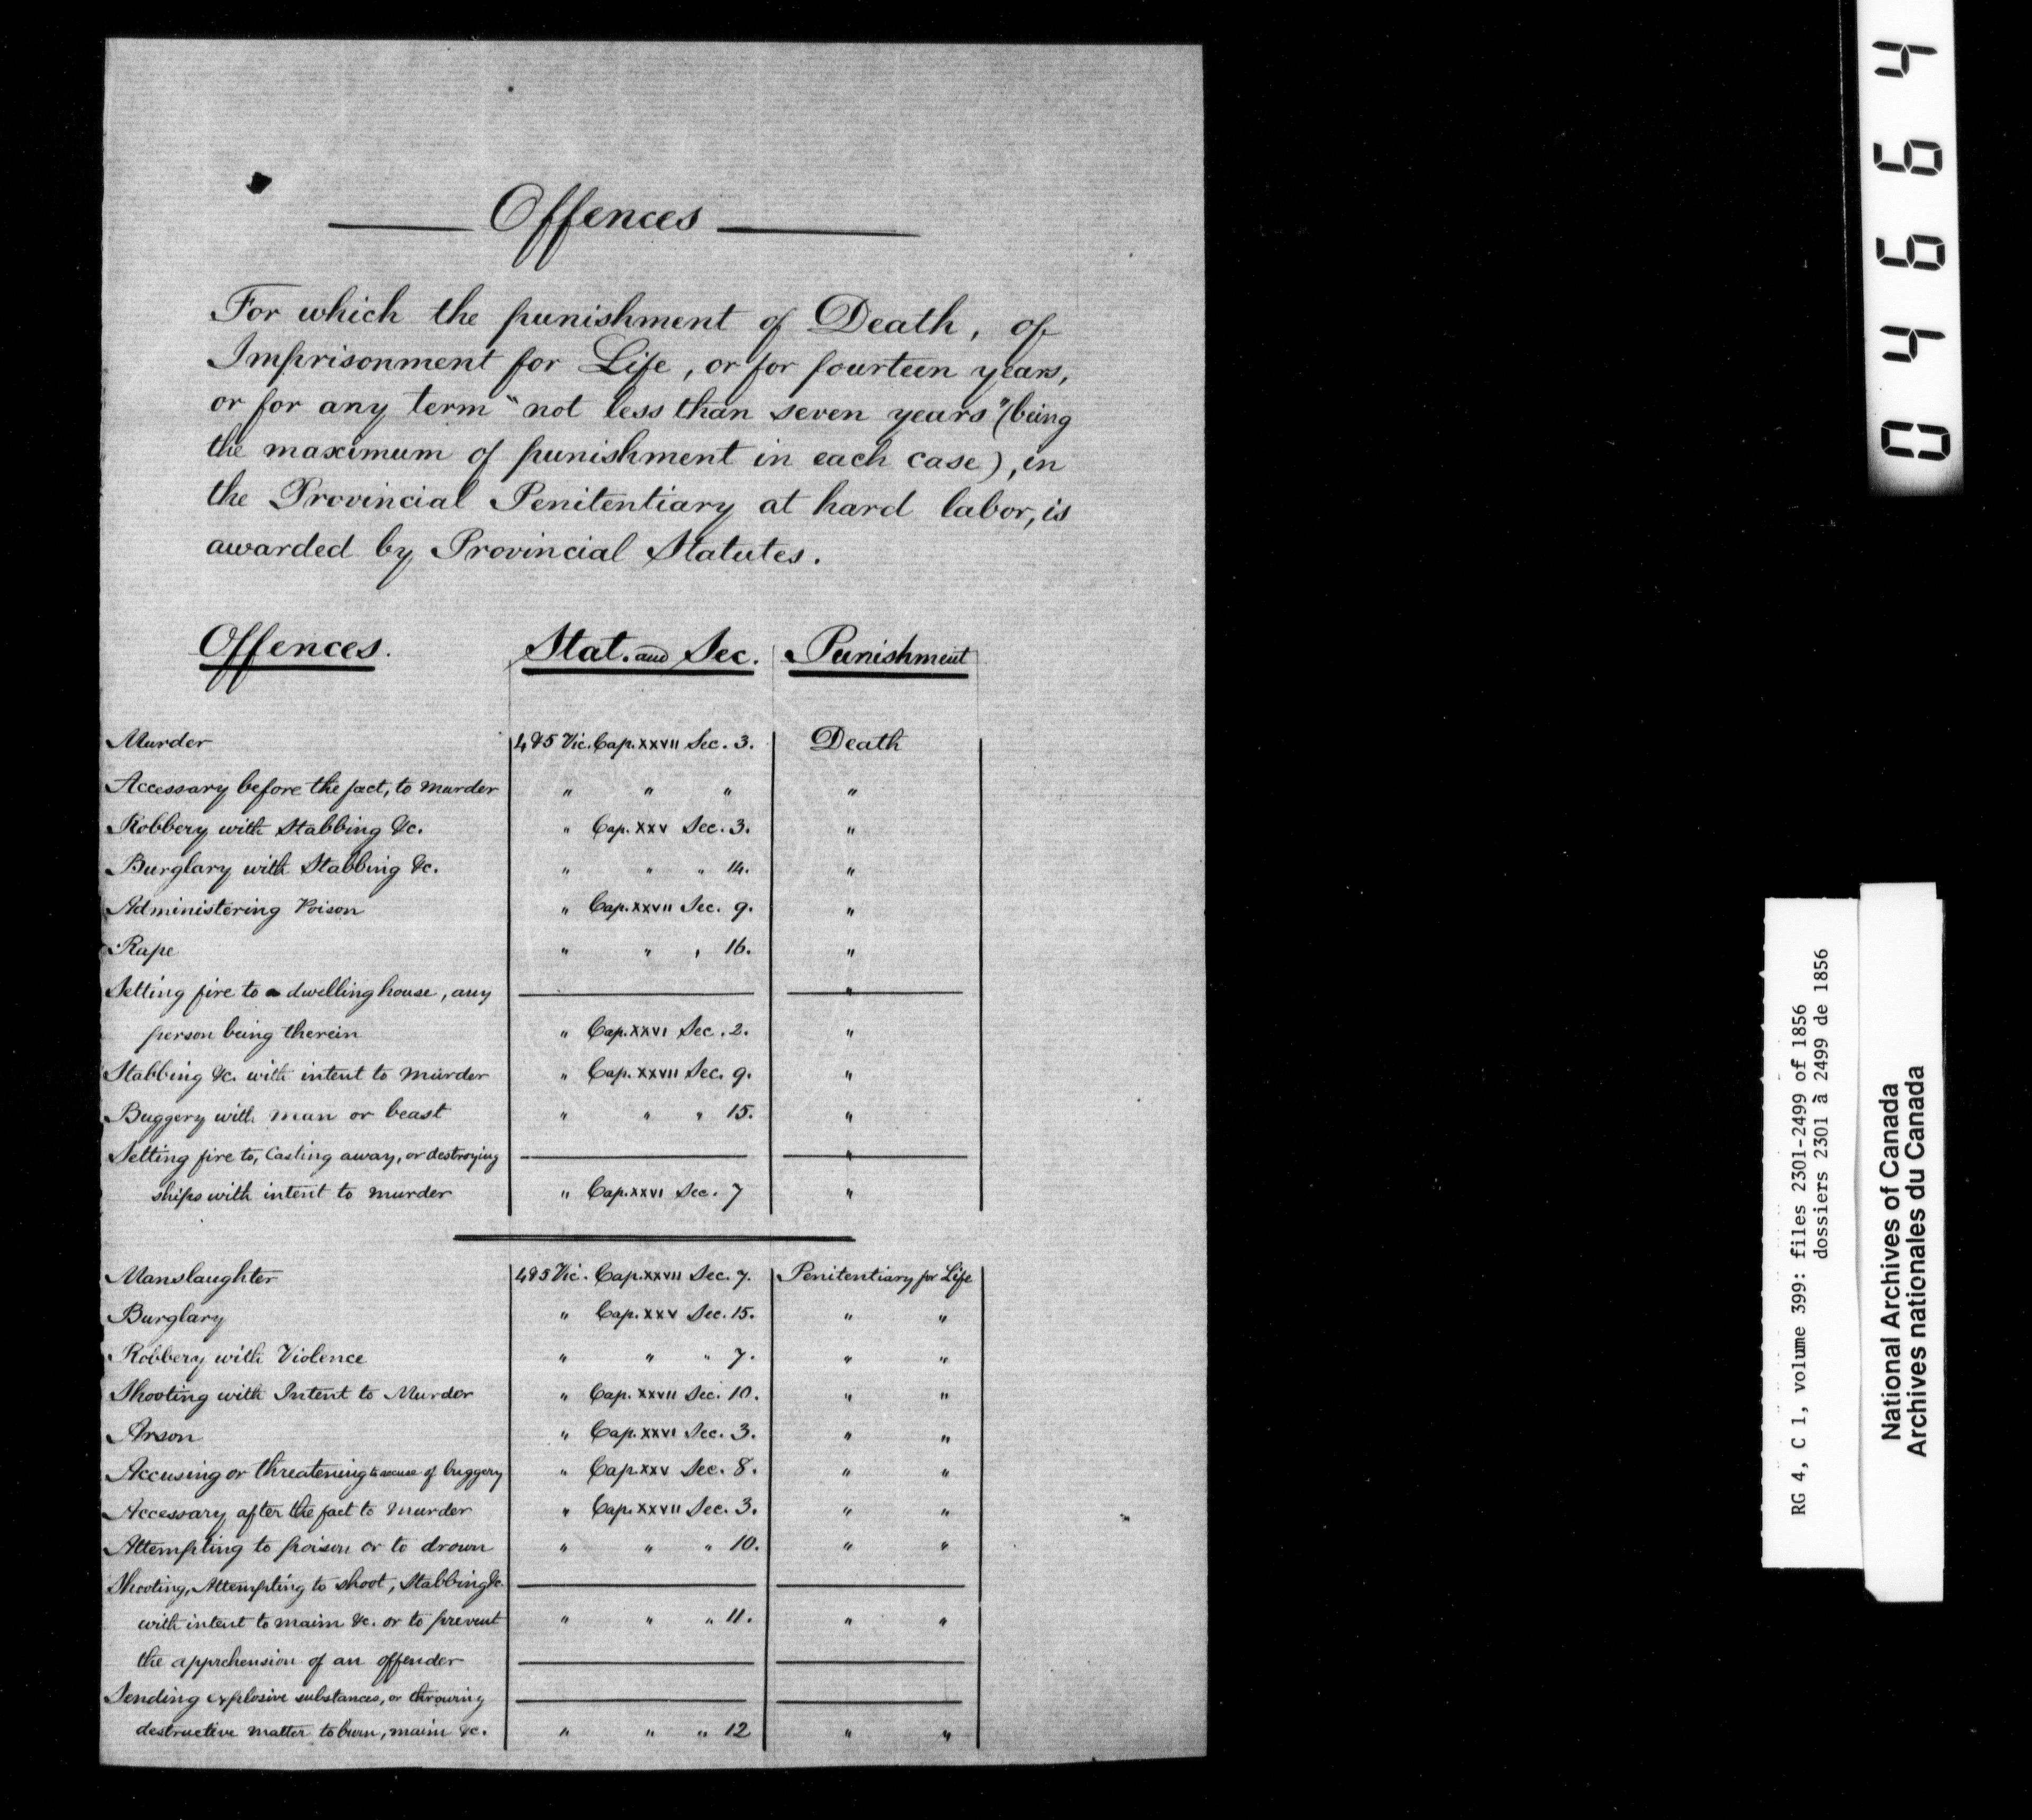 Offences
For which the punishment of Death, of
Imprisonment for Life, or for fourteen years,
or for any term "not less than seven years" (being
the maximum of punishment in each case), in
the Provincial Penitentiary at hard labor, is
awarded by Provincial Statutes.
Offences. Stat. and Sec. Punishment
Murder 4&5 Vic. Cap. XXVII Sec. 3. Death
Accessary before the fact, to murder " " " "
Robbery with Stabbing &c. " Cap. XXV Sec. 3. "
Burglary with Stabbing &c. " " " 14. "
Administering Poison " Cap. XXVII Sec. 9. "
Rape " " " 16. "
Setting fire to a dwelling house, any "
person being therein " Cap. XXVI Sec. 2. "
Stabbing &c. with intent to murder " Cap. XXVII Sec. 9. "
Buggery with man or beast " " " 15. "
Setting fire to, Casting away, or destroying "
ships with intent to murder " Cap. XXVI Sec. 7 "
Manslaughter 4&5 Vic. Cap. XXVII Sec. 7. Penitentiary for Life
Burglary " Cap. XXV Sec. 15. " "
Robbery with Violence " " " 7. " "
Shooting with Intent to Murder " Cap. XXVII Sec. 10. " "
Arson " Cap. XXVI Sec. 3. " "
Accusing or threatening to accuse of buggery " Cap. XXV Sec. 8. " "
Accessary after the fact to Murder " Cap. XXVII Sec. 3. " "
Attempting to poison or to drown " " " 10. " "
Shooting, Attempting to shoot, Stabbing &c.
with intent to maim &c. or to prevent " " " 11. " "
the apprehension of an offender
Sending explosive substances, or throwing
destructive matter to burn, maim &c. " " " 12 " "
04664
RG 4, C 1, volume 399: files 2301-2499 of 1856
dossiers 2301 à 2499 de 1856
National Archives of Canada
Archives nationales du Canada